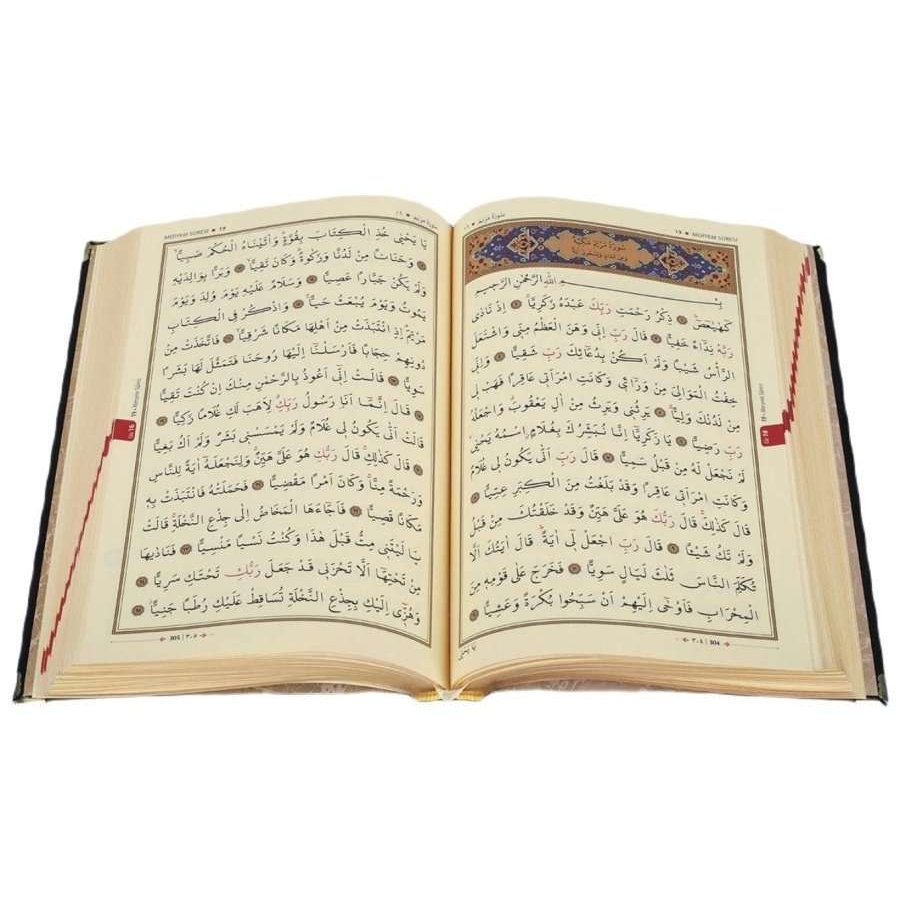 ١٩ ▪ MERYEM SURESİ
سُورَةُ مَرْيَمَ
سُورَةُ مَرْيَمَ مَكِّيَّةٌ
بِسْمِ اللّٰهِ الرَّحْمٰنِ الرَّحِيمِ
كٓهٰيٰعٓصٓ ذِكْرُ رَحْمَتِ رَبِّكَ عَبْدَهُ زَكَرِيَّا اِذْ نَادٰى
رَبَّهُ نِدَٓاءً خَفِيًّا قَالَ رَبِّ اِنّ۪ى وَهَنَ الْعَظْمُ مِنّ۪ى وَاشْتَعَلَ
الرَّأْسُ شَيْبًا وَلَمْ اَكُنْ بِدُعَٓائِكَ رَبِّ شَقِيًّا وَاِنّ۪ى
خِفْتُ الْمَوَالِىَ مِنْ وَرَٓاء۪ى وَكَانَتِ امْرَاَت۪ى عَاقِرًا فَهَبْ ل۪ى
مِنْ لَدُنْكَ وَلِيًّا يَرِثُن۪ى وَيَرِثُ مِنْ اٰلِ يَعْقُوبَ وَاجْعَلْهُ
رَبِّ رَضِيًّا يَا زَكَرِيَّٓا اِنَّا نُبَشِّرُكَ بِغُلَامٍ اسْمُهُ يَحْيٰى
لَمْ نَجْعَلْ لَهُ مِنْ قَبْلُ سَمِيًّا قَالَ رَبِّ اَنّٰى يَكُونُ ل۪ى غُلَامٌ
وَكَانَتِ امْرَاَت۪ى عَاقِرًا وَقَدْ بَلَغْتُ مِنَ الْكِبَرِ عِتِيًّا
قَالَ كَذٰلِكَ قَالَ رَبُّكَ هُوَ عَلَىَّ هَيِّنٌ وَقَدْ خَلَقْتُكَ مِنْ قَبْلُ
وَلَمْ تَكُ شَيْـًٔا قَالَ رَبِّ اجْعَلْ ل۪ٓى اٰيَةً قَالَ اٰيَتُكَ اَلَّا
تُكَلِّمَ النَّاسَ ثَلٰثَ لَيَالٍ سَوِيًّا فَخَرَجَ عَلٰى قَوْمِه۪ مِنَ
الْمِحْرَابِ فَاَوْحٰٓى اِلَيْهِمْ اَنْ سَبِّحُوا بُكْرَةً وَعَشِيًّا
٣٠٤ | 304
يَا يَحْيٰى
Cüz 16
19 - Meryem Sûresi
MERYEM SURESİ ▪ ١٩
سُورَةُ مَرْيَمَ
يَا يَحْيٰى خُذِ الْكِتَابَ بِقُوَّةٍ وَاٰتَيْنَاهُ الْحُكْمَ صَبِيًّا
وَحَنَانًا مِنْ لَدُنَّا وَزَكٰوةً وَكَانَ تَقِيًّا وَبَرًّا بِوَالِدَيْهِ
وَلَمْ يَكُنْ جَبَّارًا عَصِيًّا وَسَلَامٌ عَلَيْهِ يَوْمَ وُلِدَ وَيَوْمَ
يَمُوتُ وَيَوْمَ يُبْعَثُ حَيًّا وَاذْكُرْ فِى الْكِتَابِ
مَرْيَمَ اِذِ انْتَبَذَتْ مِنْ اَهْلِهَا مَكَانًا شَرْقِيًّا فَاتَّخَذَتْ مِنْ
دُونِهِمْ حِجَابًا فَاَرْسَلْنَٓا اِلَيْهَا رُوحَنَا فَتَمَثَّلَ لَهَا بَشَرًا
سَوِيًّا قَالَتْ اِنّ۪ٓى اَعُوذُ بِالرَّحْمٰنِ مِنْكَ اِنْ كُنْتَ تَقِيًّا
قَالَ اِنَّمَٓا اَنَا رَسُولُ رَبِّكِ لِاَهَبَ لَكِ غُلَامًا زَكِيًّا
قَالَتْ اَنّٰى يَكُونُ ل۪ى غُلَامٌ وَلَمْ يَمْسَسْن۪ى بَشَرٌ وَلَمْ اَكُ بَغِيًّا
قَالَ كَذٰلِكِ قَالَ رَبُّكِ هُوَ عَلَىَّ هَيِّنٌ وَلِنَجْعَلَهُٓ اٰيَةً لِلنَّاسِ
وَرَحْمَةً مِنَّا وَكَانَ اَمْرًا مَقْضِيًّا فَحَمَلَتْهُ فَانْتَبَذَتْ بِه۪
مَكَانًا قَصِيًّا فَاَجَٓاءَهَا الْمَخَاضُ اِلٰى جِذْعِ النَّخْلَةِ قَالَتْ
يَا لَيْتَن۪ى مِتُّ قَبْلَ هٰذَا وَكُنْتُ نَسْيًا مَنْسِيًّا فَنَادٰيهَا
مِنْ تَحْتِهَٓا اَلَّا تَحْزَن۪ى قَدْ جَعَلَ رَبُّكِ تَحْتَكِ سَرِيًّا
وَهُزّ۪ٓى اِلَيْكِ بِجِذْعِ النَّخْلَةِ تُسَاقِطْ عَلَيْكِ رُطَبًا جَنِيًّا
305 | ٣٠٥
Cüz 16
19 - Meryem Sûresi